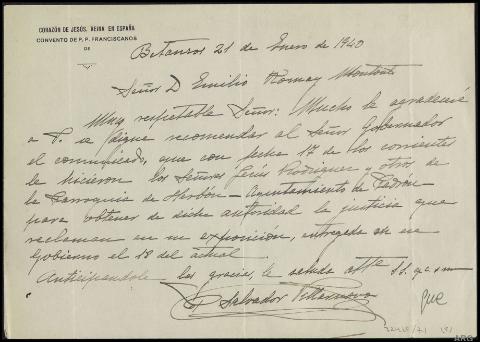 CORAZÓN DE JESÚS, REINA EN ESPAÑA
CONVENTO DE P. P. FRANCISCANOS
DE
Betanzos 21 de Enero de 1940
Señor D Emilio Romay Montoto
Muy respetable Señor: Mucho le agradeceré
a V. se digne recomendar al Señor Gobernador
el comunicado, que con fecha 17 de los corrientes
le hicieron los Señores Jesús Rodriguez y otros de
la Parroquia de Herbón – Ayuntamiento de Padrón –
para obtener de dicha autoridad la justicia que
reclaman en su exposición, entregada en ese
Gobierno el 18 del actual.
Anticipandole las gracias, le saluda atte s. s. q e s m
P. Salvador Villanueva
que